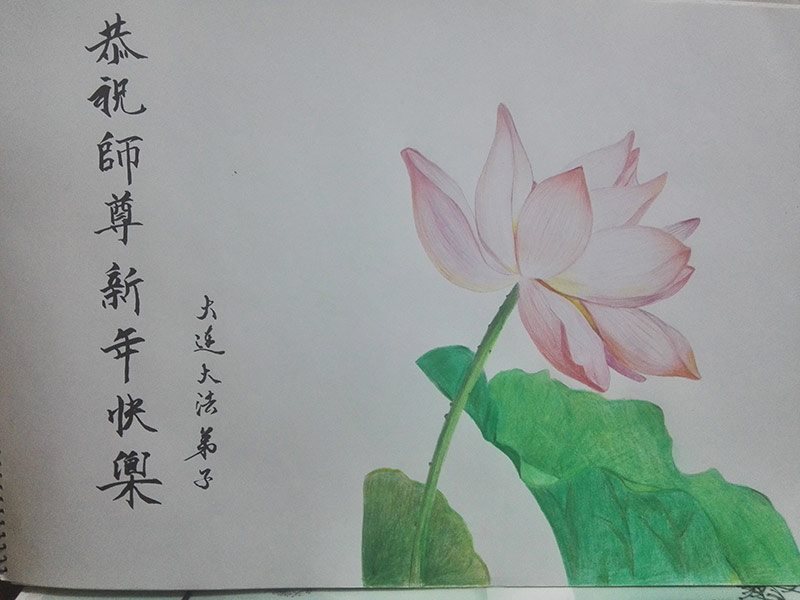 恭祝師尊新年快樂
大连大法弟子